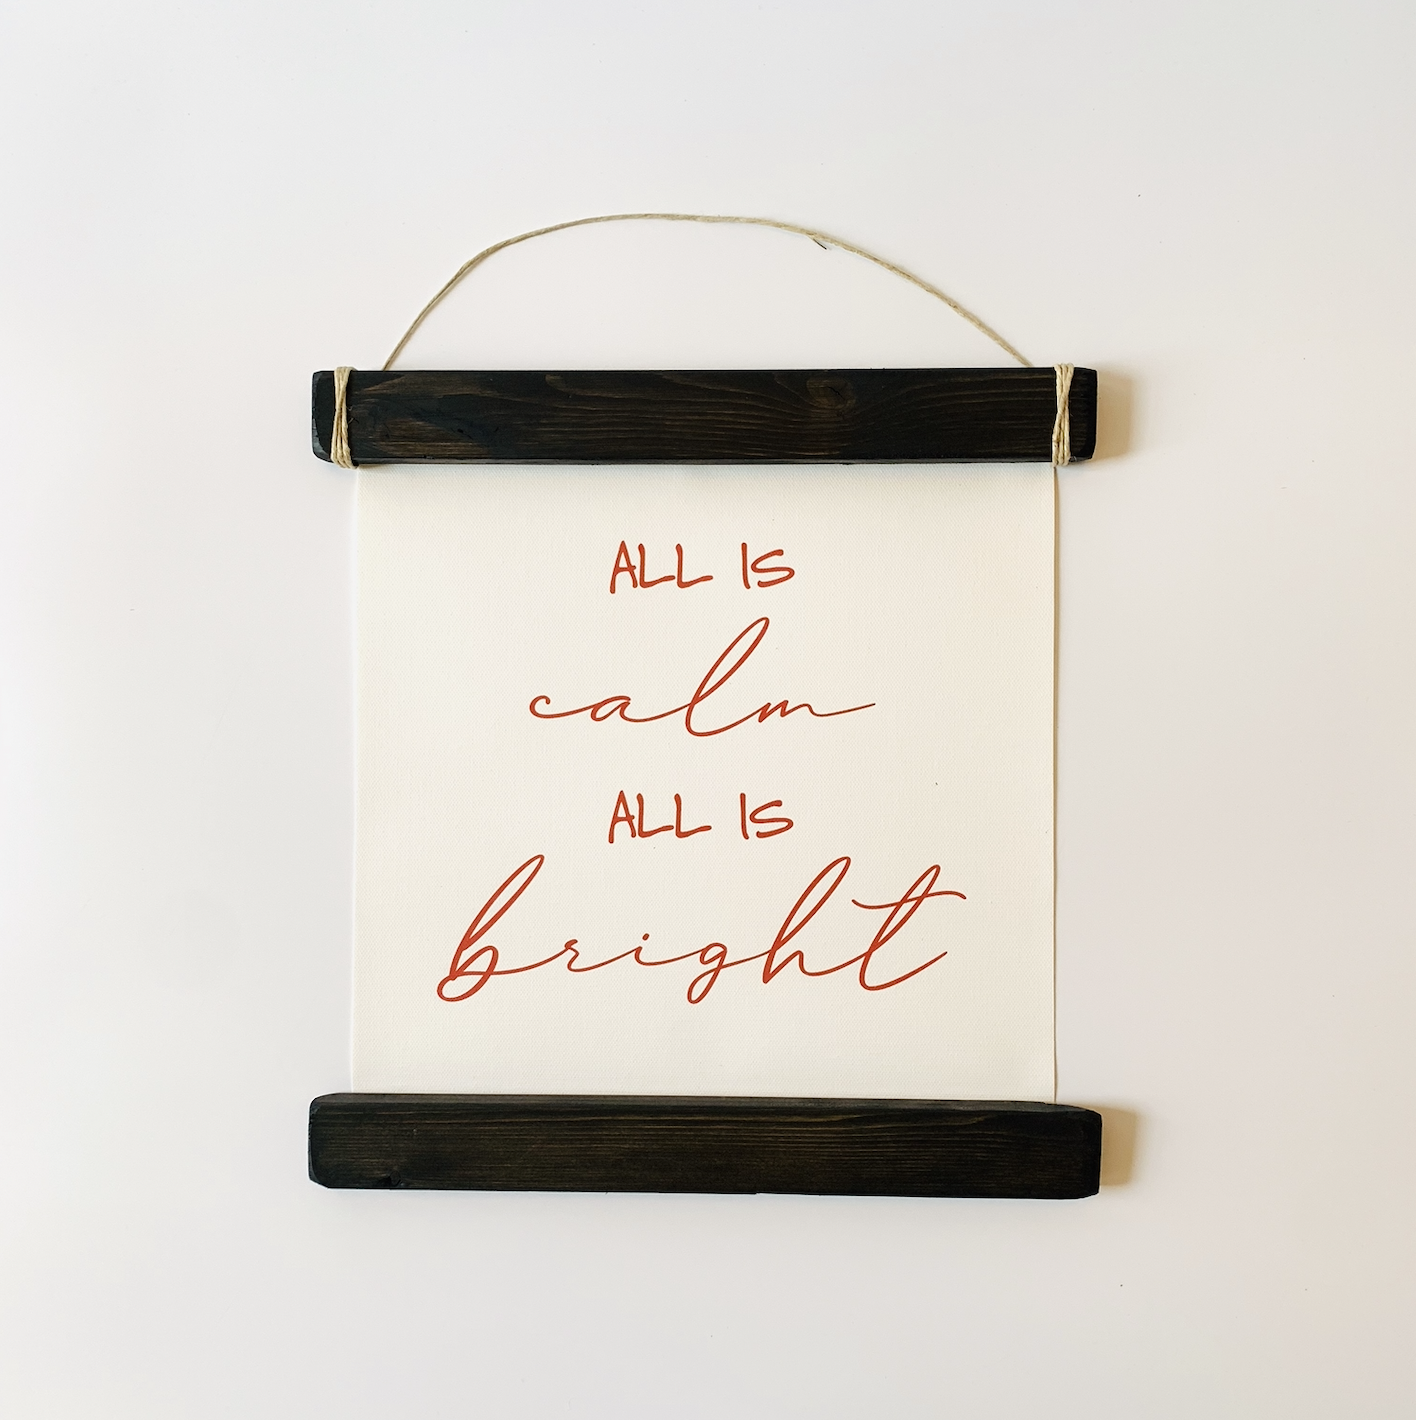 ALL IS
calm
ALL IS
bright